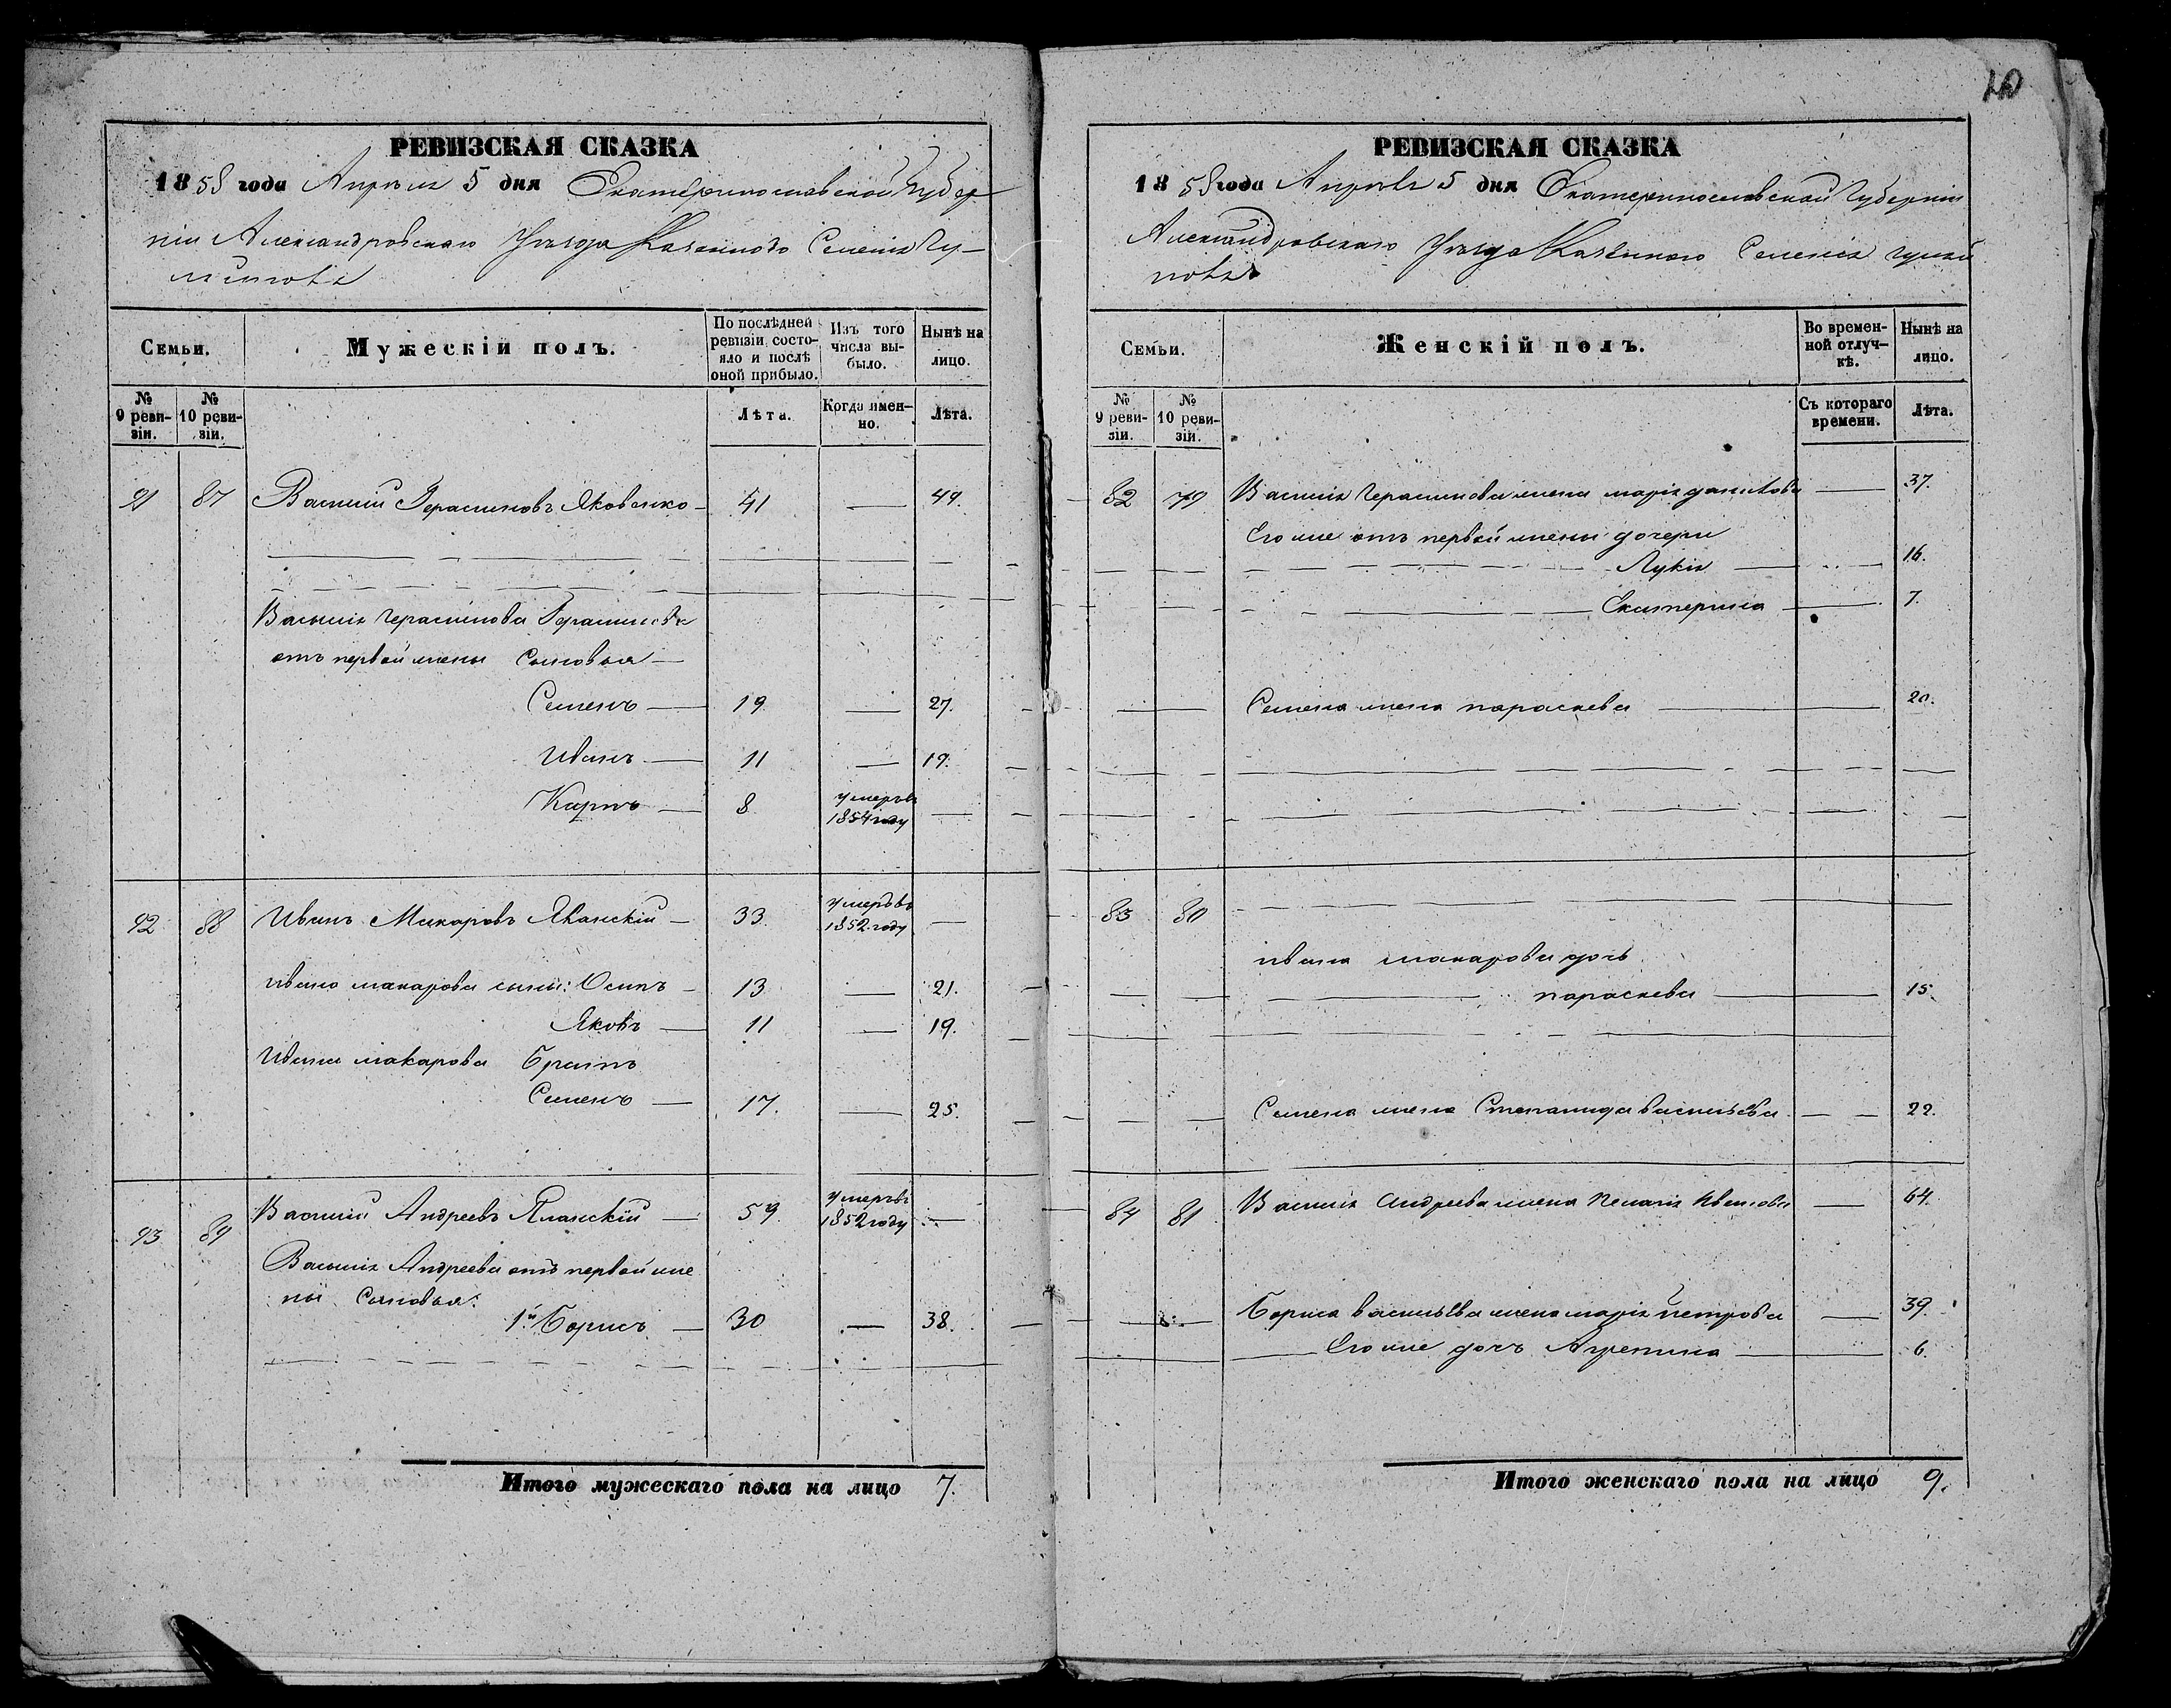 РЕВИЗСКАЯ СКАЗКА
1858 года Апреля 5 дня Екатеринославской Губер
ніи Александровскаго Уѣзда Казеннаго Селенія Гу-
Семьи.
Мужескій полъ.
По послѣдней ревизіи состояло и послѣ оной прибыло.
Изъ того числа выбыло.
Нынѣ на лицо.
№ 9 ревизіи.
№ 10 ревизіи.
Лѣта.
Когда именно.
Лѣта.
91 87 Василій Герасимовъ Яковенко 41 — 49.
Василія Герасимова
отъ первой жены Сыновья —
Семенъ — 19 — 27.
Иванъ — 11 — 19.
Карпъ — 8 умеръ въ 1854 году —
92 88 Иванъ Макаровъ 33 умеръ въ 1852 году —
Ивана Макарова сыны: Осипъ — 13 — 21.
Яковъ — 11 — 19.
Ивана Макарова братъ
Семенъ — 17. — 25.
93 89 Василій Андреевъ Яланскій — 59 умеръ въ 1852 году —
Василія Андреева отъ первой же
ны Сыновья:
1й Борисъ — 30 — 38.
Итого мужескаго пола на лицо 7.
10
РЕВИЗСКАЯ СКАЗКА
1858 года Апреля 5 дня Екатеринославской Губерніи
Александровскаго Уѣзда Казеннаго Селенія
Семьи.
Женскій полъ.
Во временной отлучкѣ.
Нынѣ на лицо.
№ 9 ревизіи.
№ 10 ревизіи.
Съ котораго времени.
Лѣта.
82 79 Василія Герасимова жена Марія Данилова — 37.
Его же отъ первой жены дочери
Лукія — 16.
Екатерина — 7.
Семена жена Параскева — 20.
83 80
Ивана Макарова дочь
Параскева — 15.
Семена жена Степанида Васильева — 22.
84 81 Василія Андреева жена Пелагія Иванова — 64.
Бориса Васильева жена Марія Петрова — 39.
Его же дочь Агрепина — 6.
Итого женскаго пола на лицо 9.